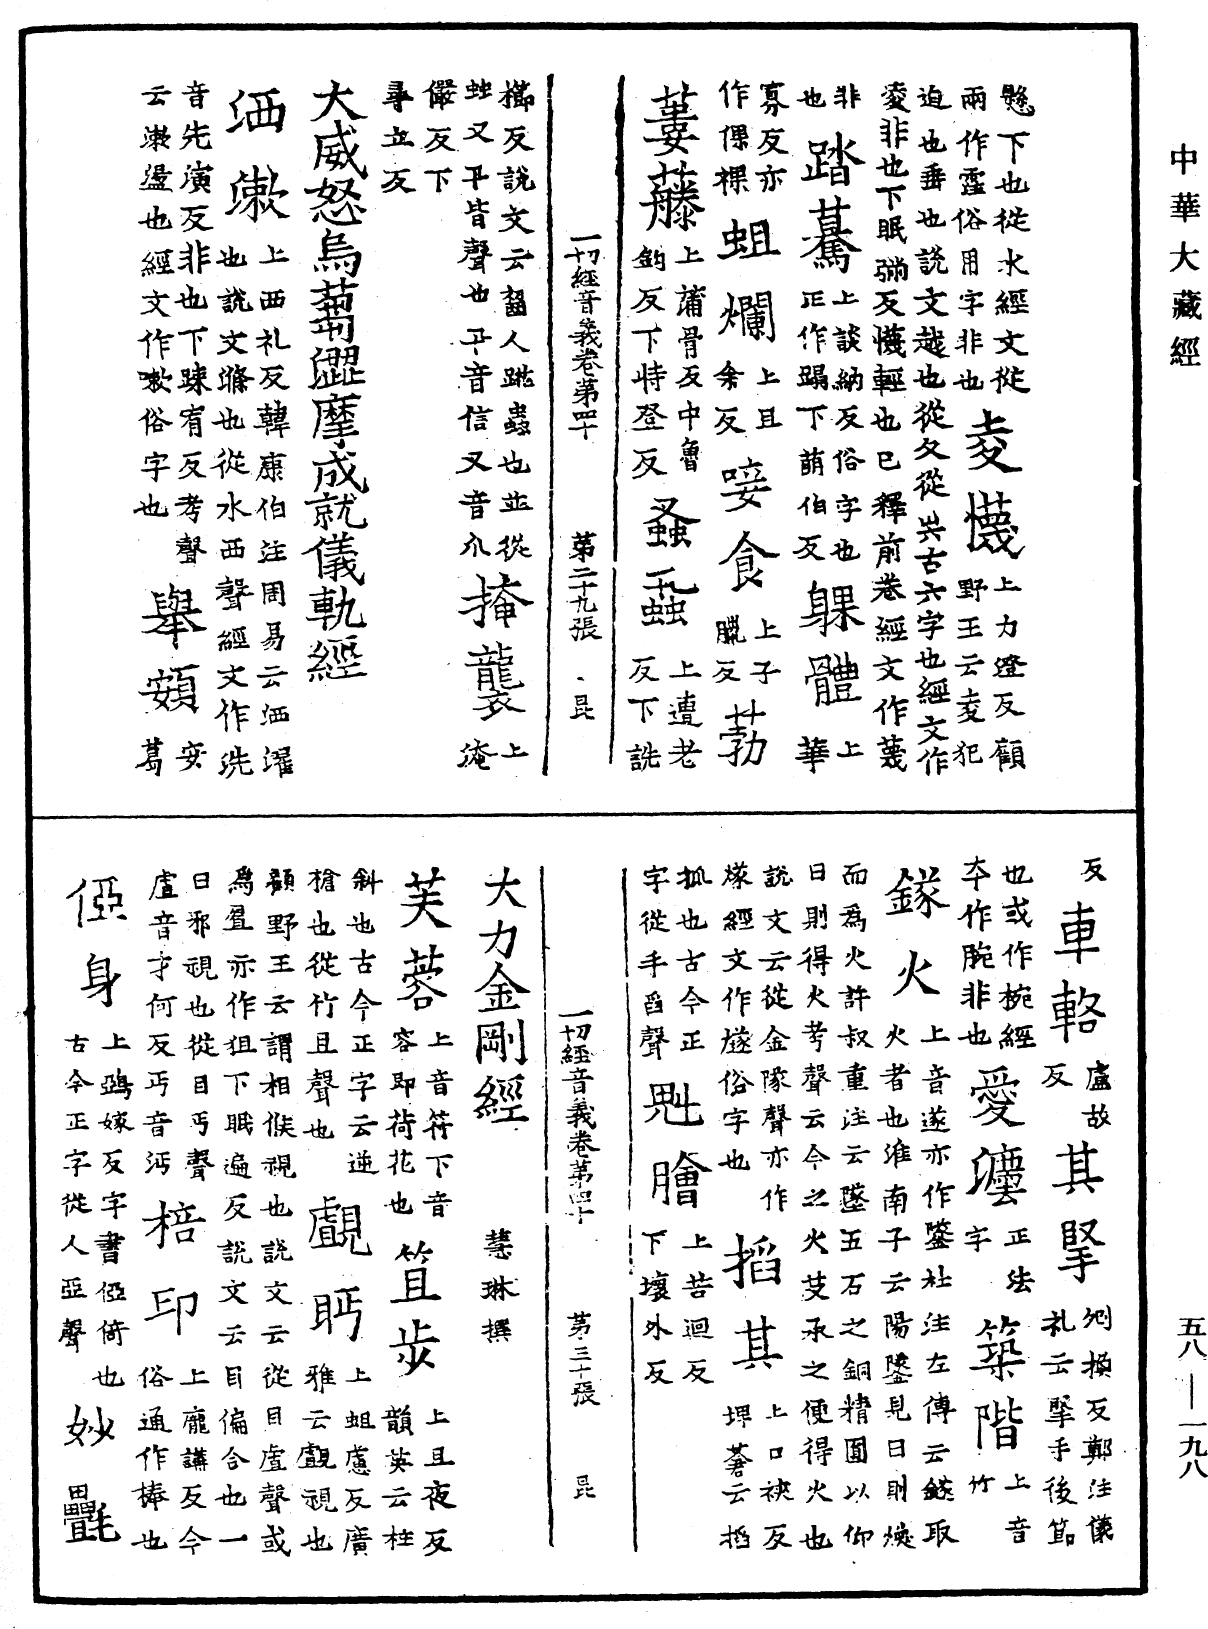 中華大藏經
懸下也從水經文從
兩作霊俗用字非也
夌懱
上力澄反顧
野王云夌犯
迫也垂也說文越也從夂從㚇古六字也經文作
凌非也下眠彌反懱輕也已釋前卷經文作蔑
非也
踏驀
上談納反俗字也
正作蹋下萌伯反
躶體
上華
寡反亦
作倮裸
蛆爛
上且
余反
唼食
上子
臘反
葧
蔞䕨
上蒲骨反中魯
鉤反下特登反
蚤蝨
上遭老
反下詵
一切經音義卷第四十 第二十九張 昆
櫛反說文云齧人跳蟲也並從
䖵叉卂皆聲也卂音信叉音爪
掩襲
上淹
儼反下
尋立反
大威怒烏蒭澀摩成就儀軌經
洒漱
上西礼反韓康伯注周易云洒濯
也說文滌也從水西聲經文作洗
音先演反非也下踈宥反考聲
云漱盪也經文作嗽俗字也
舉頞
安葛
反
車輅
盧故
反
其掔
剜換反鄭注儀
礼云掔手後節
也或作椀經
夲作腕非也
愛灋
正法
字
築階
上音
竹
鐩火
上音遂亦作鐆杜注左傳云鐩取
火者也淮南子云陽鐆見日則燃
而為火許叔重注云鐆五石之銅精圓以仰
日則得火考聲云今之火艾承之便得火也
說文云從金隊聲亦作
㷞經文作燧俗字也
搯其
上口狹反
埤蒼云搯
抓也古今正
字從手舀聲
魁膾
上苦迴反
下壞外反
一切經音義卷第四十 第三十張 昆
大力金剛經 慧琳撰
芙蓉
上音符下音
容即荷花也
笡步
上且夜反
韻英云柱
斜也古今正字云逆
槍也從竹且聲也
覰眄
上蛆慮反廣
雅云覰視也
顧野王云謂相候視也說文云從目虘聲或
為覷亦作狙下眠遍反說文云目偏合也一
曰邪視也從目丏聲
虘音才何反丏音沔
棓印
上龐講反今
俗通作棒也
俹身
上鵶嫁反字書俹倚也
古今正字從人亞聲
妙㲲
五八—一九八